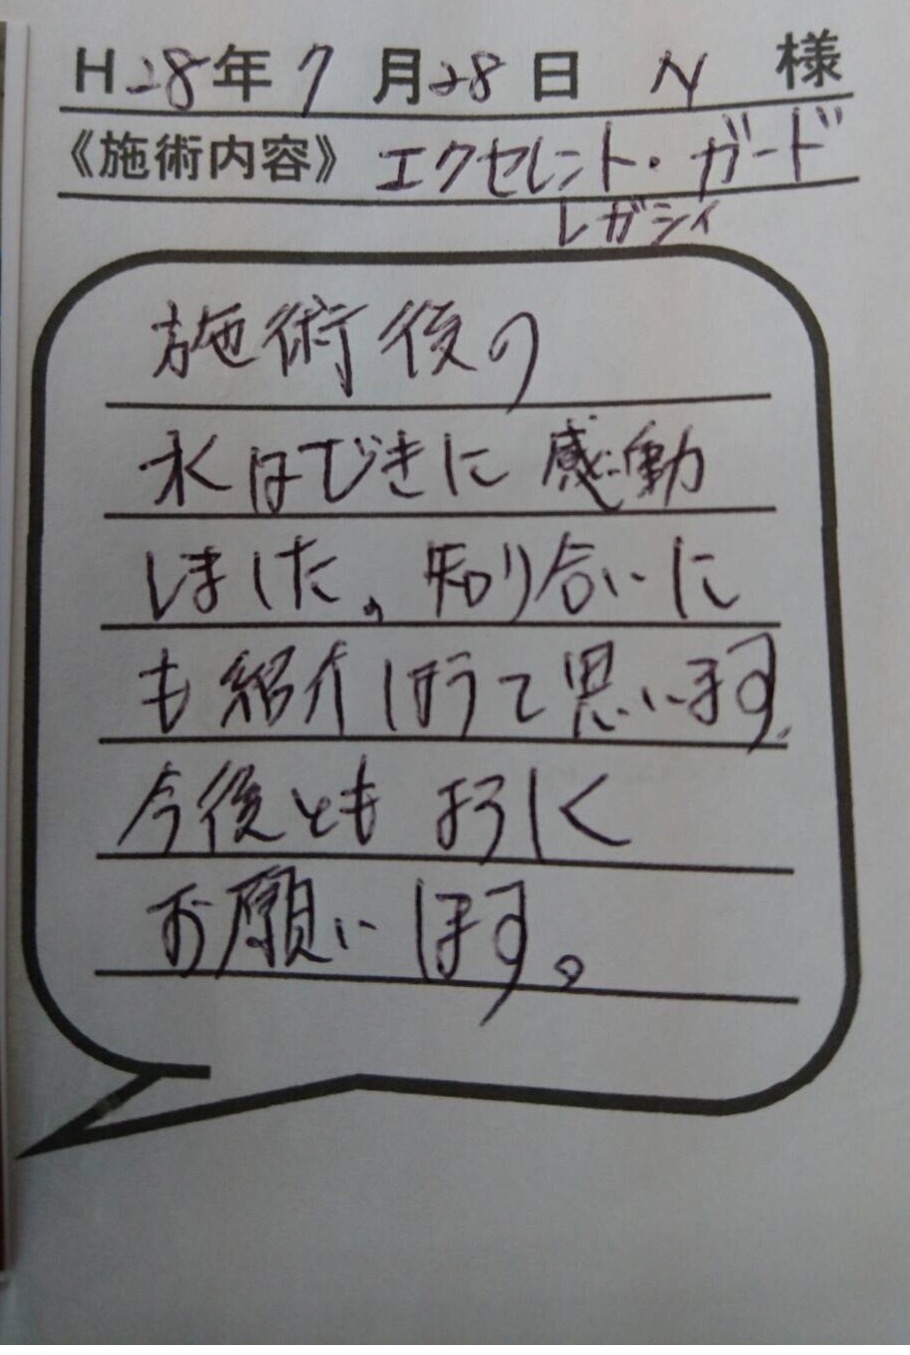 H28年7月28日 N 様
《施術内容》エクセレント・ガード
レガシィ
施術後の
水はじきに感動
しました。知り合いに
も紹介しようて思います。
今後ともよろしく
お願いします。